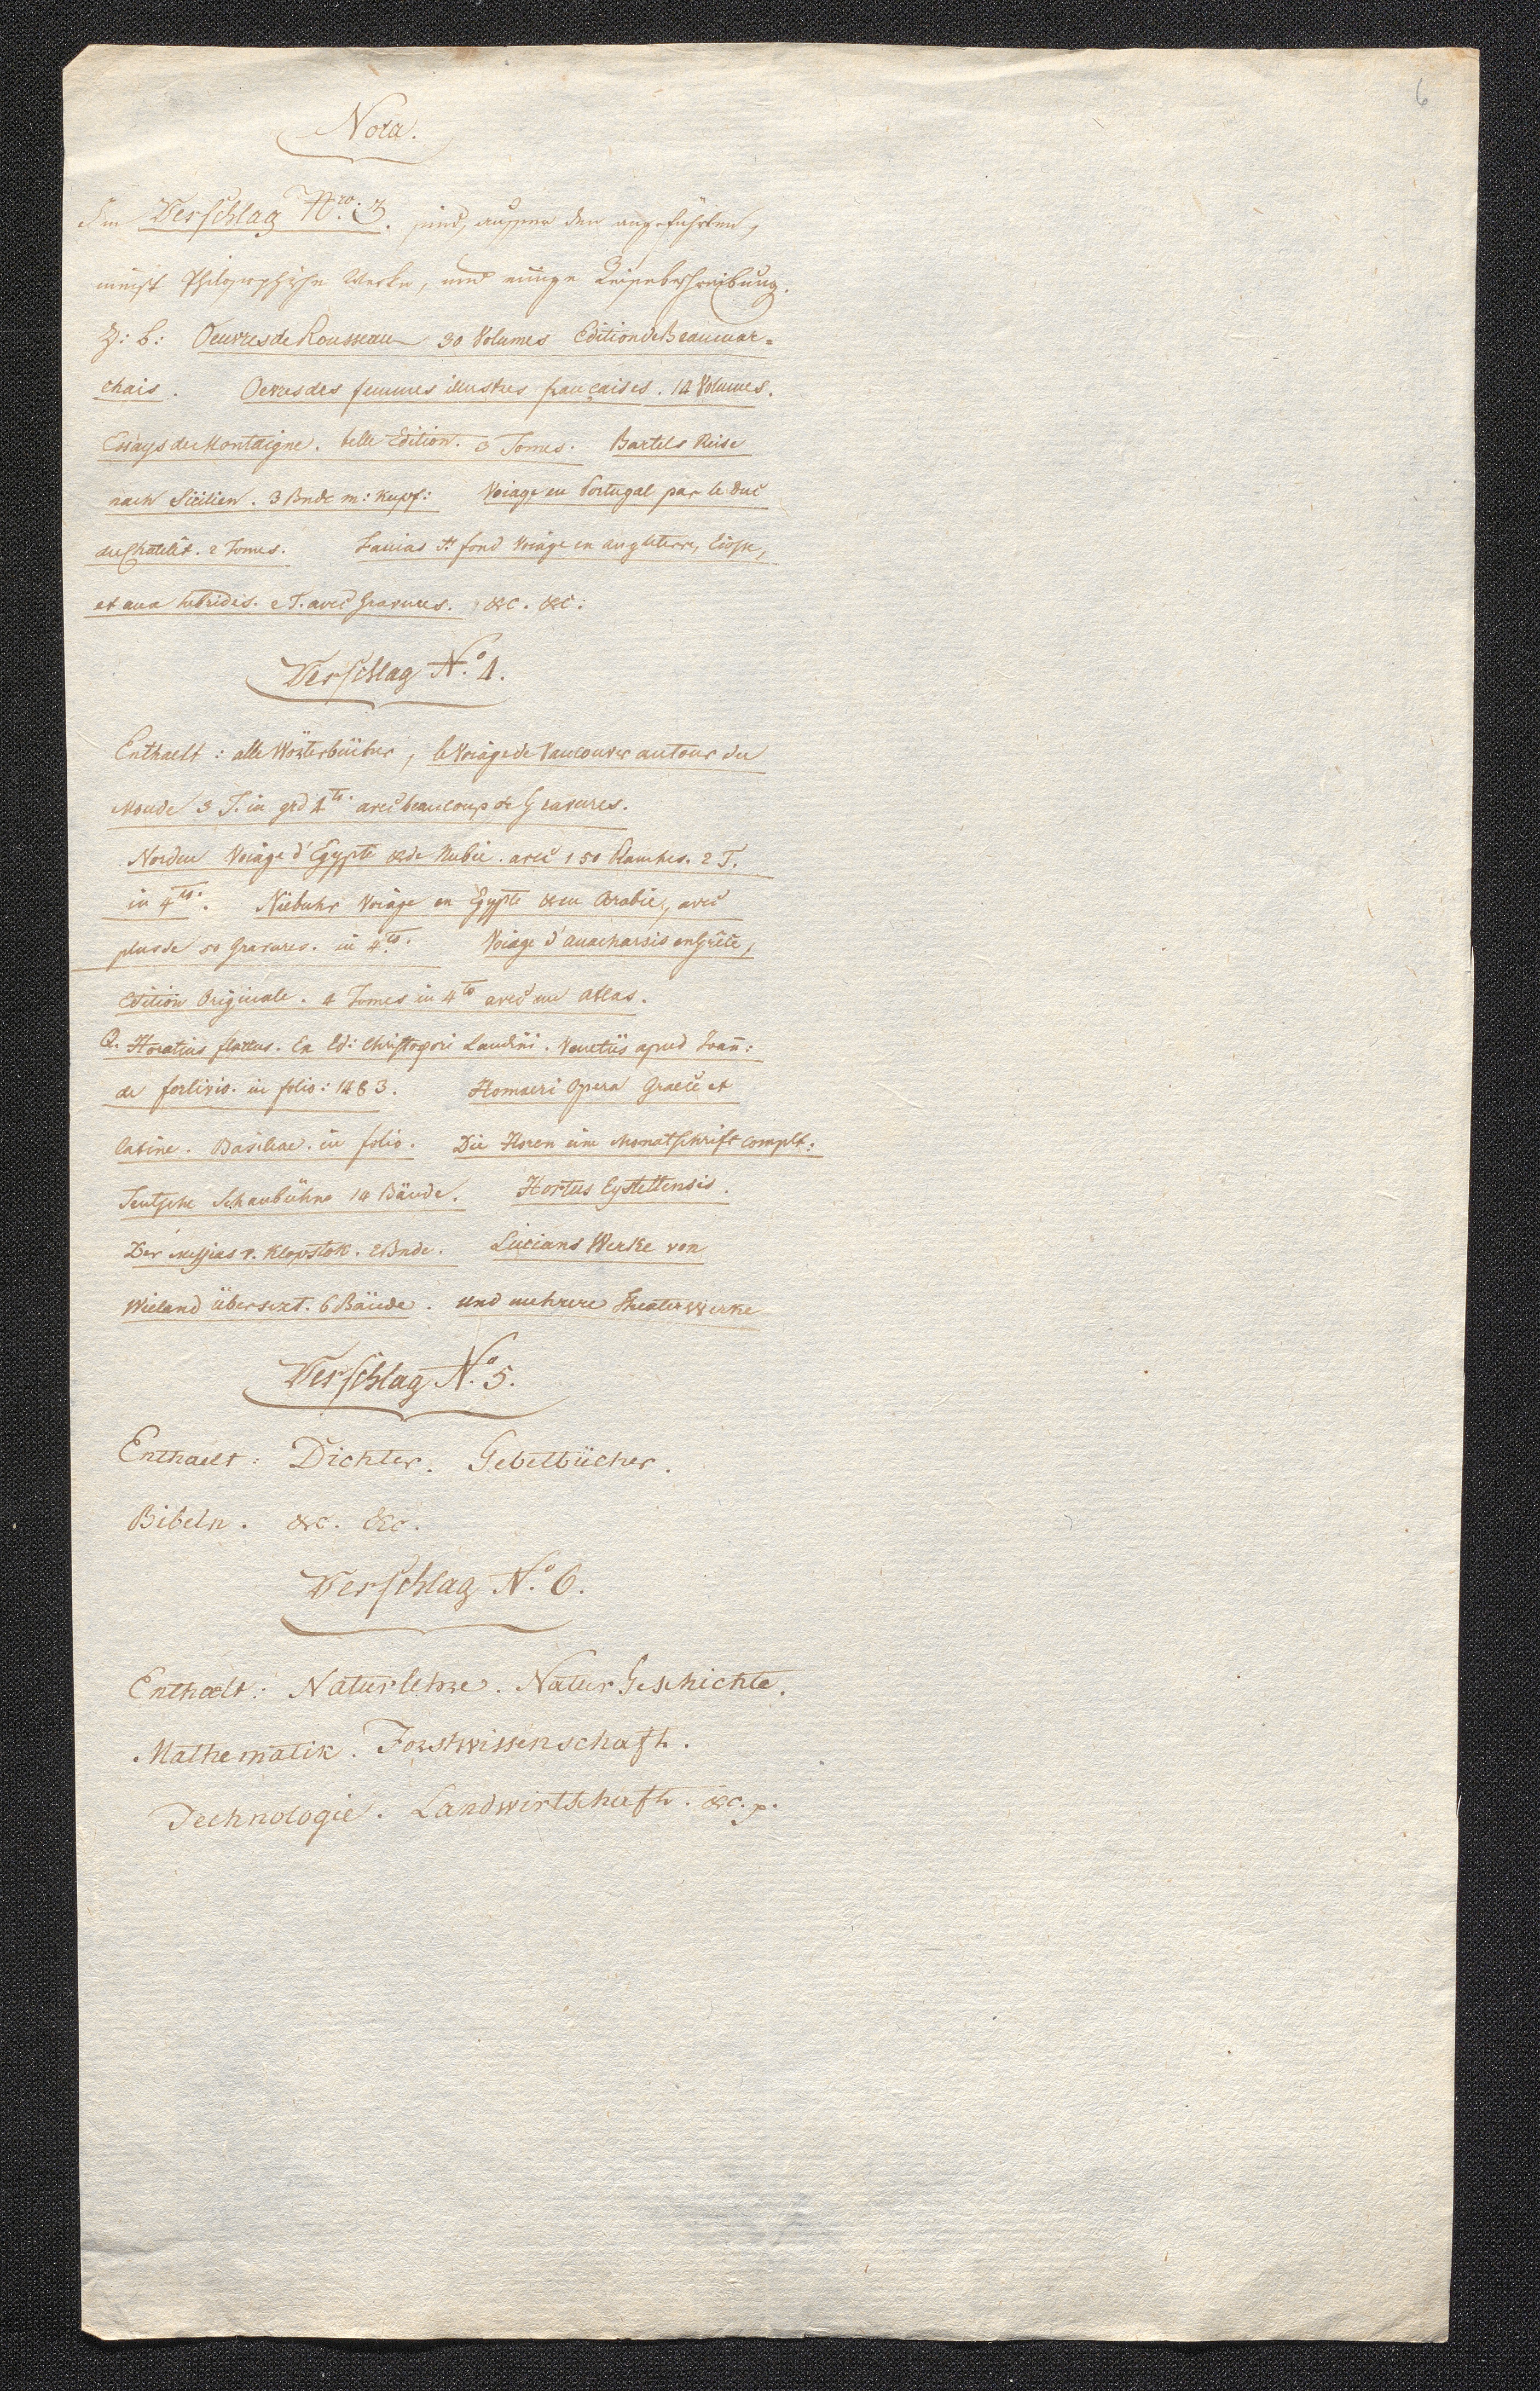 6
Nota.
Im Verschlag Nro: 3. sind, ausser den angeführten,
meist Philosophische Werke, und einige Reisebeschreibung.
Z: b: Oeuvres de Rousseau 30 Volumes Edition de Beaumar-
chais. Oevres des femmes illustres françaises. 14 Volumes.
Essays de Montaigne. belle Edition. 3 Tomes. Bartels Reise
nach Sicilien. 3 Bnde m: Kupf: Voiage en Portugal par le Duc
du Chatelet. 2 Tomes. Faujas St fond Voiage en angleterre, Eccosse,
et aux hebrides. 2 T. avec Gravures. &c. &c:
Verschlag No. 4.
Enthaelt: alle Wörterbücher, le Voiage de Vancouver autour du
Monde 3 T. in grd 4to. avec beaucoup de Gravures.
Norden Voiage d'Egypte & de Nubie. avec 150 Planches. 2 T.
in 4to. Niebuhr Voiage en Egypte & en Arabie, avec
plus de 50 Gravures. in 4to. Voiage d'anacharsis en Grêce,
Edition Originale. 4 Tomes in 4to avec un Atlas.
Q. Horatius flaccus. Ex Ed: Christopori Landini. Venetiis apud Joan̄:
de forlivio. in folio: 1483. Homaeri Opera Graece et
latine. Basileae. in folio. Die Horen eine Monatschrift complt:
Teutsche Schaubühne 14 Bände. Hortus Eystettensis.
Der Messias v. Klopstok. 2 Bnde. Lucians Werke von
Wieland übersezt. 6 Bände. und mehrere Theaterwerke
Verschlag No. 5.
Enthaelt: Dichter. Gebetbücher.
Bibeln. &c. &c.
Verschlag No. 6.
Enthaelt: Naturlehre. Natur Geschichte.
Mathematik. Forstwissenschaft.
Technologie. Landwirtschaft. &c.